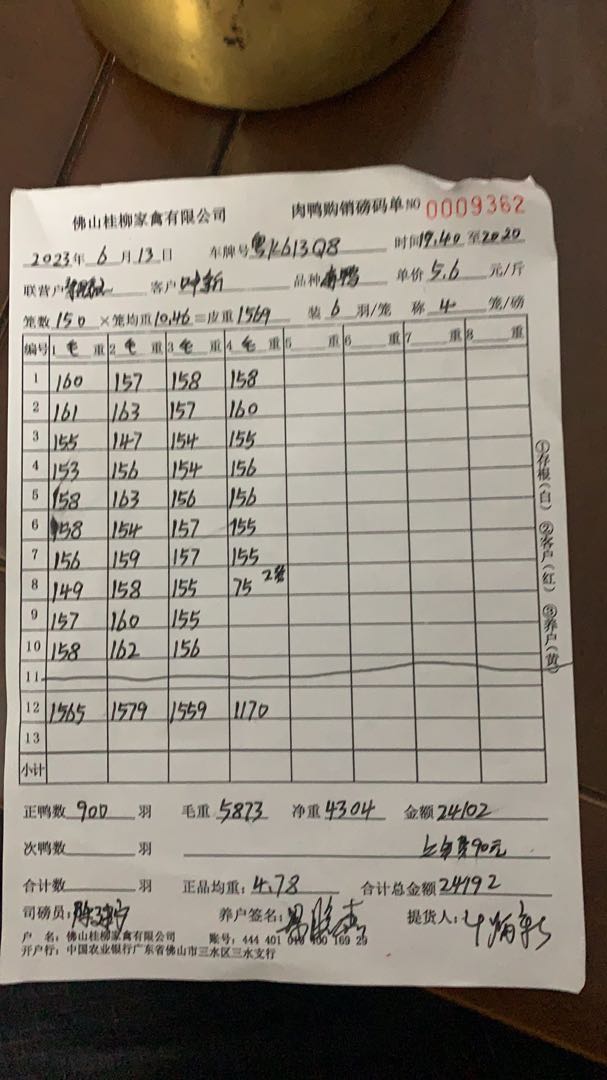 佛山桂柳家禽有限公司 肉鸭购销磅码单 NO 0009362
2023年 6 月 13 日 车牌号 粤K613Q8 时间 19.40 至 2020
联营户 客户 叶新 品种 南鸭 单价 5.6 元/斤
笼数 150 ×笼均重 10.46 =皮重 1569 装 6 羽/笼 称 4 笼/磅
编号 1 毛 重 2 毛 重 3 毛 重 4 毛 重 5 重 6 重 7 重 8 重
1 160 157 158 158
2 161 163 157 160
3 155 147 154 155
4 153 156 154 156
5 158 163 156 156
6 158 154 157 155
7 156 159 157 155
8 149 158 155 75 2笼
9 157 160 155
10 158 162 156
11
12 1565 1579 1559 1170
13
小计
正鸭数 900 羽 毛重 5873 净重 4304 金额 24102
次鸭数 羽 上车费90元
合计数 羽 正品均重: 4.78 合计总金额 24192
司磅员: 养户签名: 提货人:
户 名: 佛山桂柳家禽有限公司 账号: 444 401 010 400 169 29
开户行: 中国农业银行广东省佛山市三水区三水支行
①存根(白) ②客户(红) ③养户(黄)